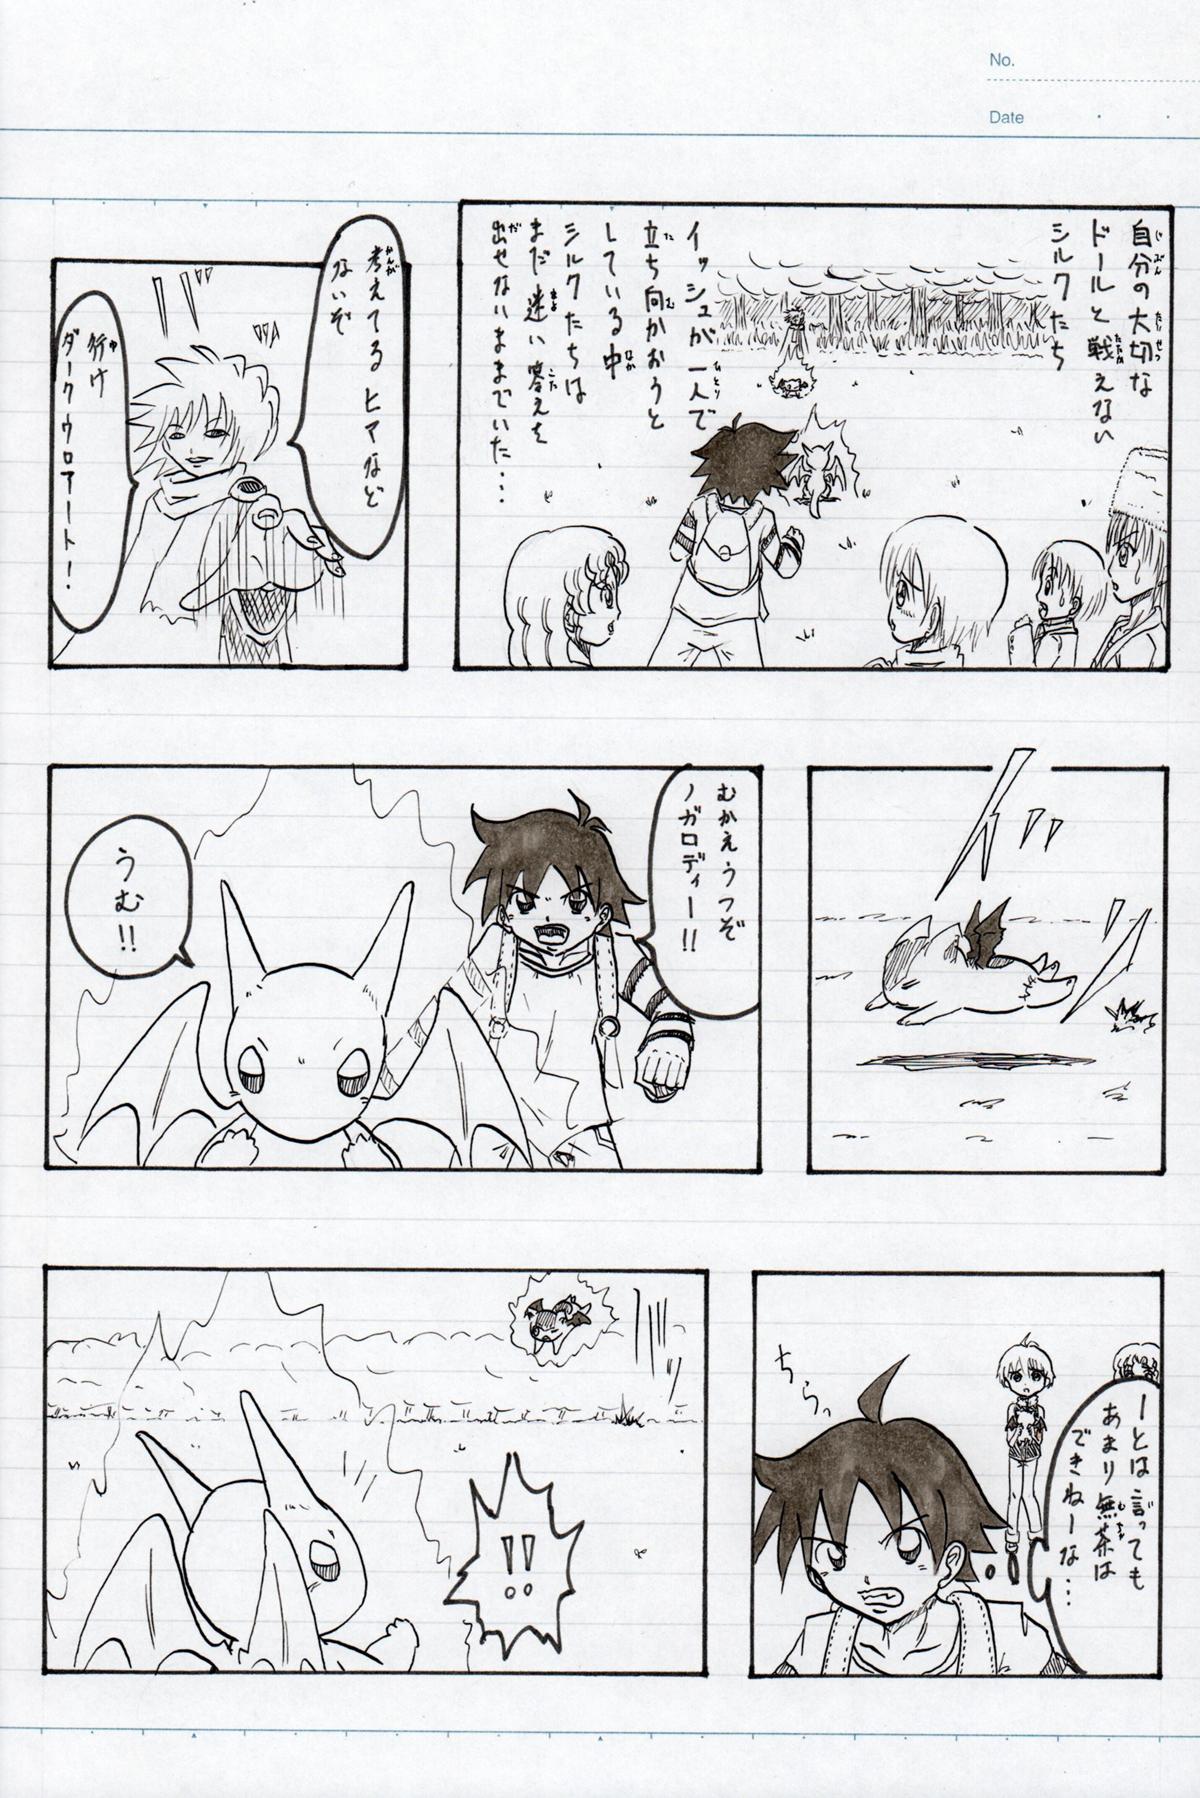 No.
Date
自分の大切な
ドールと戦えない
シルクたち
イッシュが一人で
立ち向かおうと
している中
シルクたちは
まだ迷い答えを
出せないままでいた…
考えてるヒマなど
ないぞ
行け
ダークウロアート!
むかえうつぞ
ノガロディー!!
うむ!!
ーとは言っても
あまり無茶は
できねーな…
ちらっ
!!